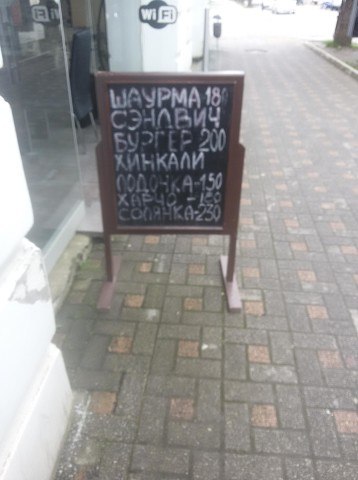 Wi Fi
ШАУРМА 180
СЭНДВИЧ
БУРГЕР 200
ХИНКАЛИ
ЛОДОЧКА-150
ХАРЧО -120
СОЛЯНКА-230